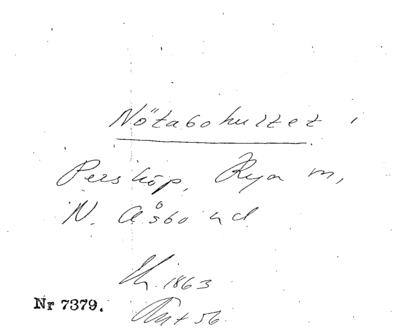 Nötabohuset i
Perstorp, Rya m,
N. Åsbo hd.
1863
Nr 7379.